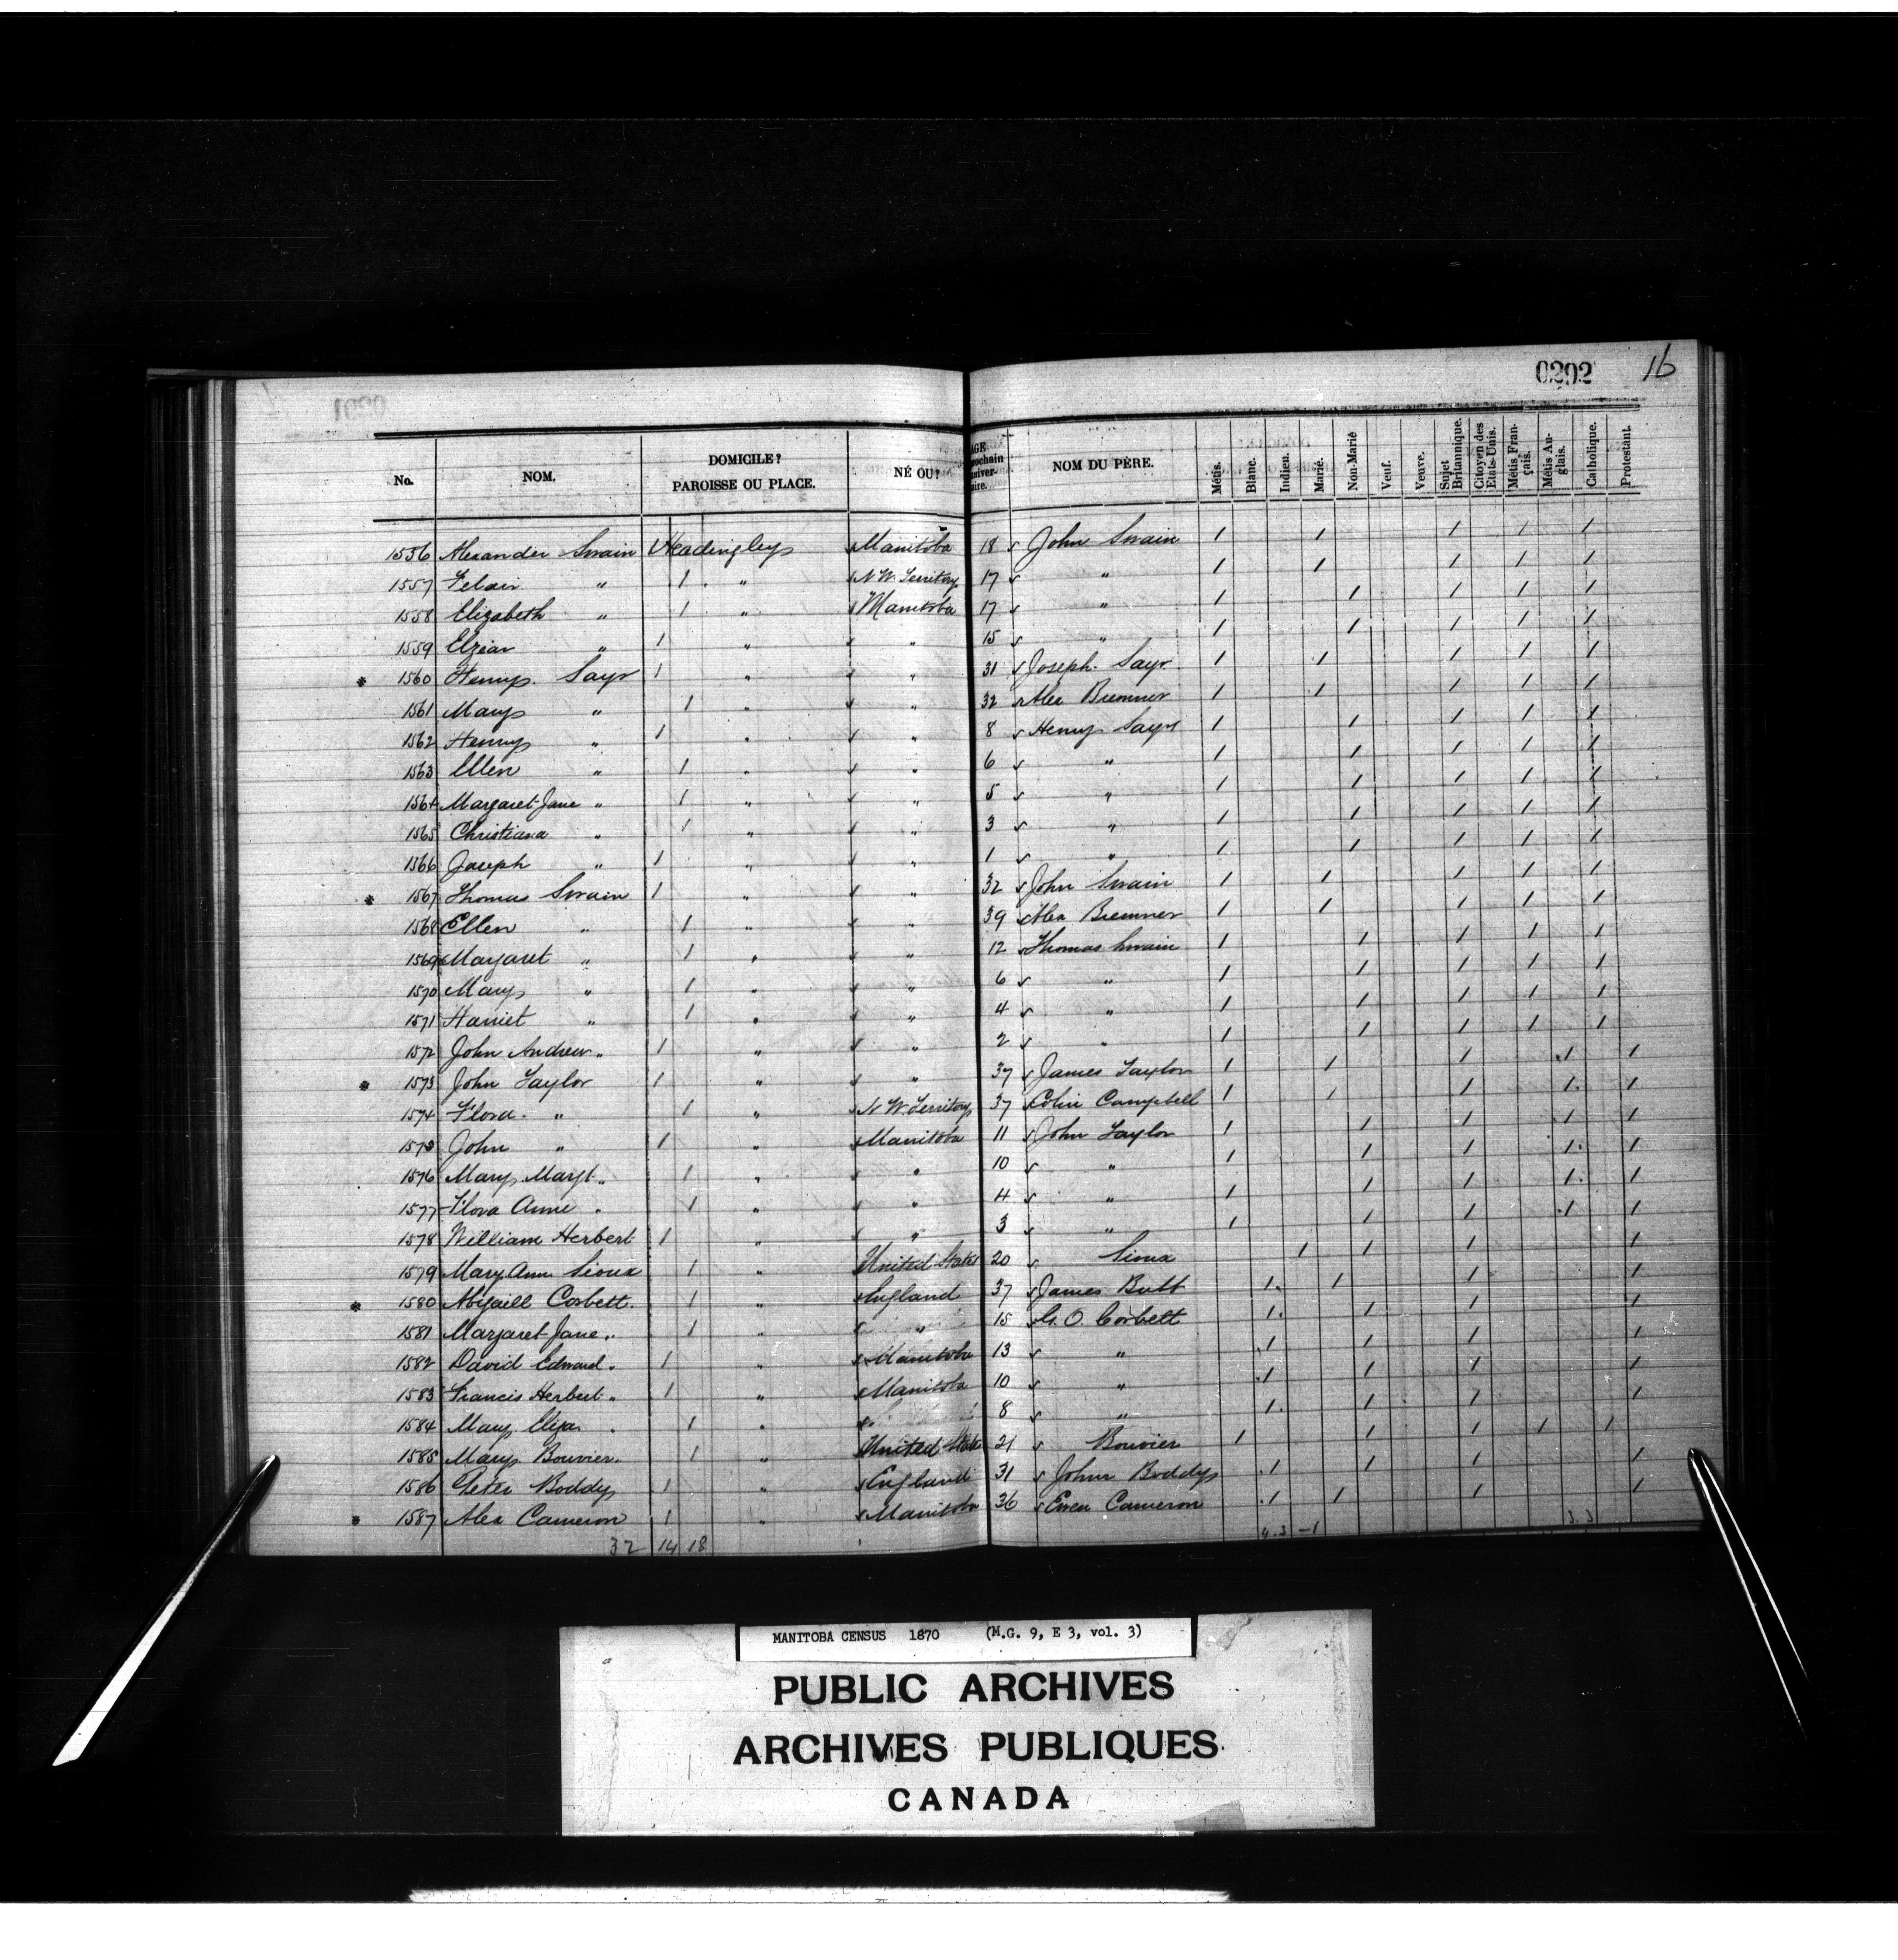 0292 16
No. NOM. DOMICILE? PAROISSE OU PLACE. NÉ OU? AGE prochain anniver- saire. NOM DU PÈRE. Métis. Blanc. Indien. Marié. Non-Marié Veuf. Veuve. Sujet Britannique. Citoyen des Etats-Unis. Métis Fran- çais. Métis An- glais. Catholique. Protestant.
1556 Alexander Swain Headingley Manitoba 18 John Swain 1 1 1 1 1
1557 " 1 " N W. Territory 17 " 1 1 1 1 1
1558 Elizabeth " 1 " Manitoba 17 " 1 1 1 1 1
1559 Elzear " 1 " " 15 " 1 1 1 1 1
* 1560 Henry Sayr 1 " " 31 Joseph Sayr 1 1 1 1 1
1561 Mary " 1 " " 32 Alex Bremner 1 1 1 1 1
1562 Henry " 1 " " 8 Henry Sayr 1 1 1 1 1
1563 Ellen " 1 " " 6 " 1 1 1 1 1
1564 Margaret Jane " 1 " " 5 " 1 1 1 1 1
1565 Christiana " 1 " " 3 " 1 1 1 1 1
1566 Joseph " 1 " " 1 " 1 1 1 1 1
* 1567 Thomas Swain 1 " " 32 John Swain 1 1 1 1 1
1568 Ellen " 1 " " 39 Alex Bremner 1 1 1 1 1
1569 Margaret " 1 " " 12 Thomas Swain 1 1 1 1 1
1570 Mary " 1 " " 6 " 1 1 1 1 1
1571 Harriet " 1 " " 4 " 1 1 1 1 1
1572 John Andrew " 1 " " 2 " 1 1 1 1 1
* 1573 John Taylor 1 " " 37 James Taylor 1 1 1 1 1
1574 Flora " 1 " N W. Territory 37 Colin Campbell 1 1 1 1 1
1575 John " 1 " Manitoba 11 John Taylor 1 1 1 1 1
1576 Mary Margt " 1 " " 10 " 1 1 1 1 1
1577 Flora Anne " 1 " " 4 " 1 1 1 1 1
1578 William Herbert 1 " " 3 " 1 1 1 1 1
1579 Mary Ann Sioux 1 " United States 20 Sioux 1 1 1 1
* 1580 Abigaill Corbett 1 " England 37 James Butt 1 1 1 1
1581 Margaret Jane " 1 " " 15 G. O. Corbett 1 1 1 1
1582 David Edward " 1 " Manitoba 13 " 1 1 1 1
1583 Francis Herbert " 1 " Manitoba 10 " 1 1 1 1
1584 Mary Eliza " 1 " 8 " 1 1 1 1
1585 Mary Bouvier 1 " United States 21 Bouvier 1 1 1 1 1
1586 Peter Boddy 1 " England 31 John Boddy 1 1 1 1
* 1587 Alex Cameron 1 " Manitoba 36 Ewen Cameron 1 1 1 1
32 14 18
MANITOBA CENSUS 1870 (M.G. 9, E 3, vol. 3)
PUBLIC ARCHIVES
ARCHIVES PUBLIQUES
CANADA